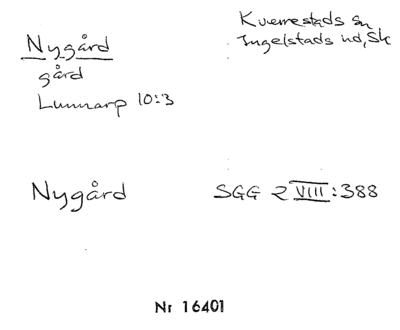 Nygård
gård
Lunnarp 10:3
Kverrestads sn
Ingelstads hd, Sk
Nygård
SGG 2 VIII:388
Nr 16401